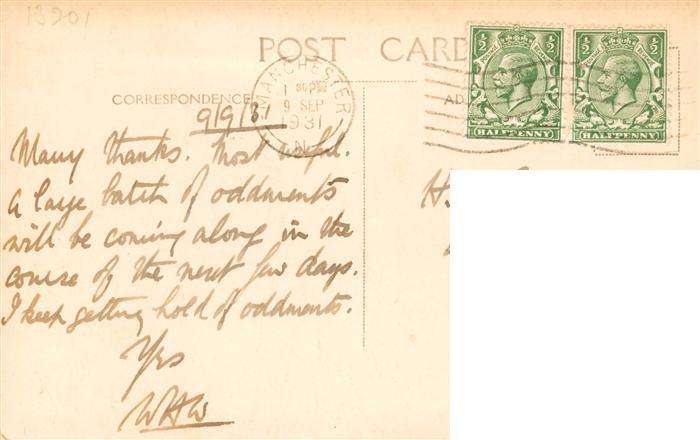 13201
POST CARD
MANCHESTER
1
9 SEP
1931
CORRESPONDENCE
AD
½ ½
½ ½
HALFPENNY HALFPENNY
9/9/31
Many thanks. Most useful.
A large batch of oddments
will be coming along in the
course of the next few days.
I keep getting hold of oddments.
Yrs
WHW
H.